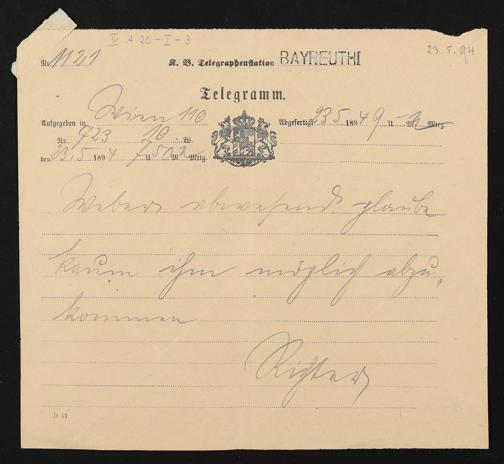 IV A 20-I-3
23.5.94
No 1121 K. B. Telegraphenstation BAYREUTH
Telegramm.
Aufgegeben in Wien 110
Abgefertigt 23 5 189 4 9 U M Mttg.
Nr. 723 10 W.
den 23,5 189 4 7 U 50 M Mttg.
Weber abwesend glaube
kaum ihm möglich abzu„
kommen
Richter
D 51